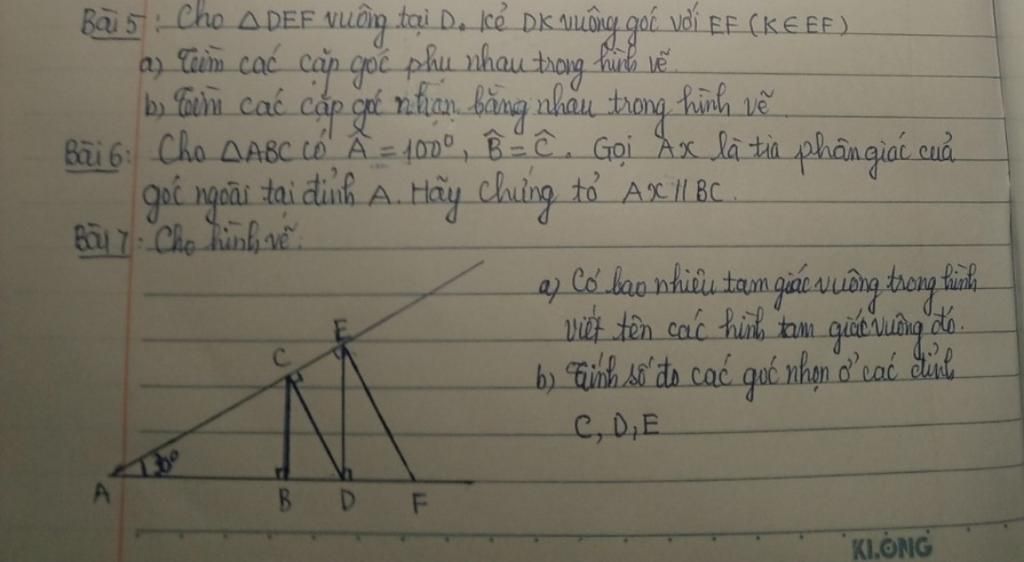 Bài 5: Cho △DEF vuông tại D. Kẻ DK vuông góc với EF (K∈EF)
a) Tìm các cặp góc phụ nhau trong hình vẽ
b) Tìm các cặp góc nhọn bằng nhau trong hình vẽ.
Bài 6: Cho △ABC có Â = 100°, B̂ = Ĉ. Gọi Ax là tia phân giác của
góc ngoài tại đỉnh A. Hãy chứng tỏ Ax // BC.
Bài 7: Cho hình vẽ.
a) Có bao nhiêu tam giác vuông trong hình
viết tên các hình tam giác vuông đó.
b) Tính số đo các góc nhọn ở các đỉnh
C, D, E
E
C
30°
A
B
D
F
KLONG